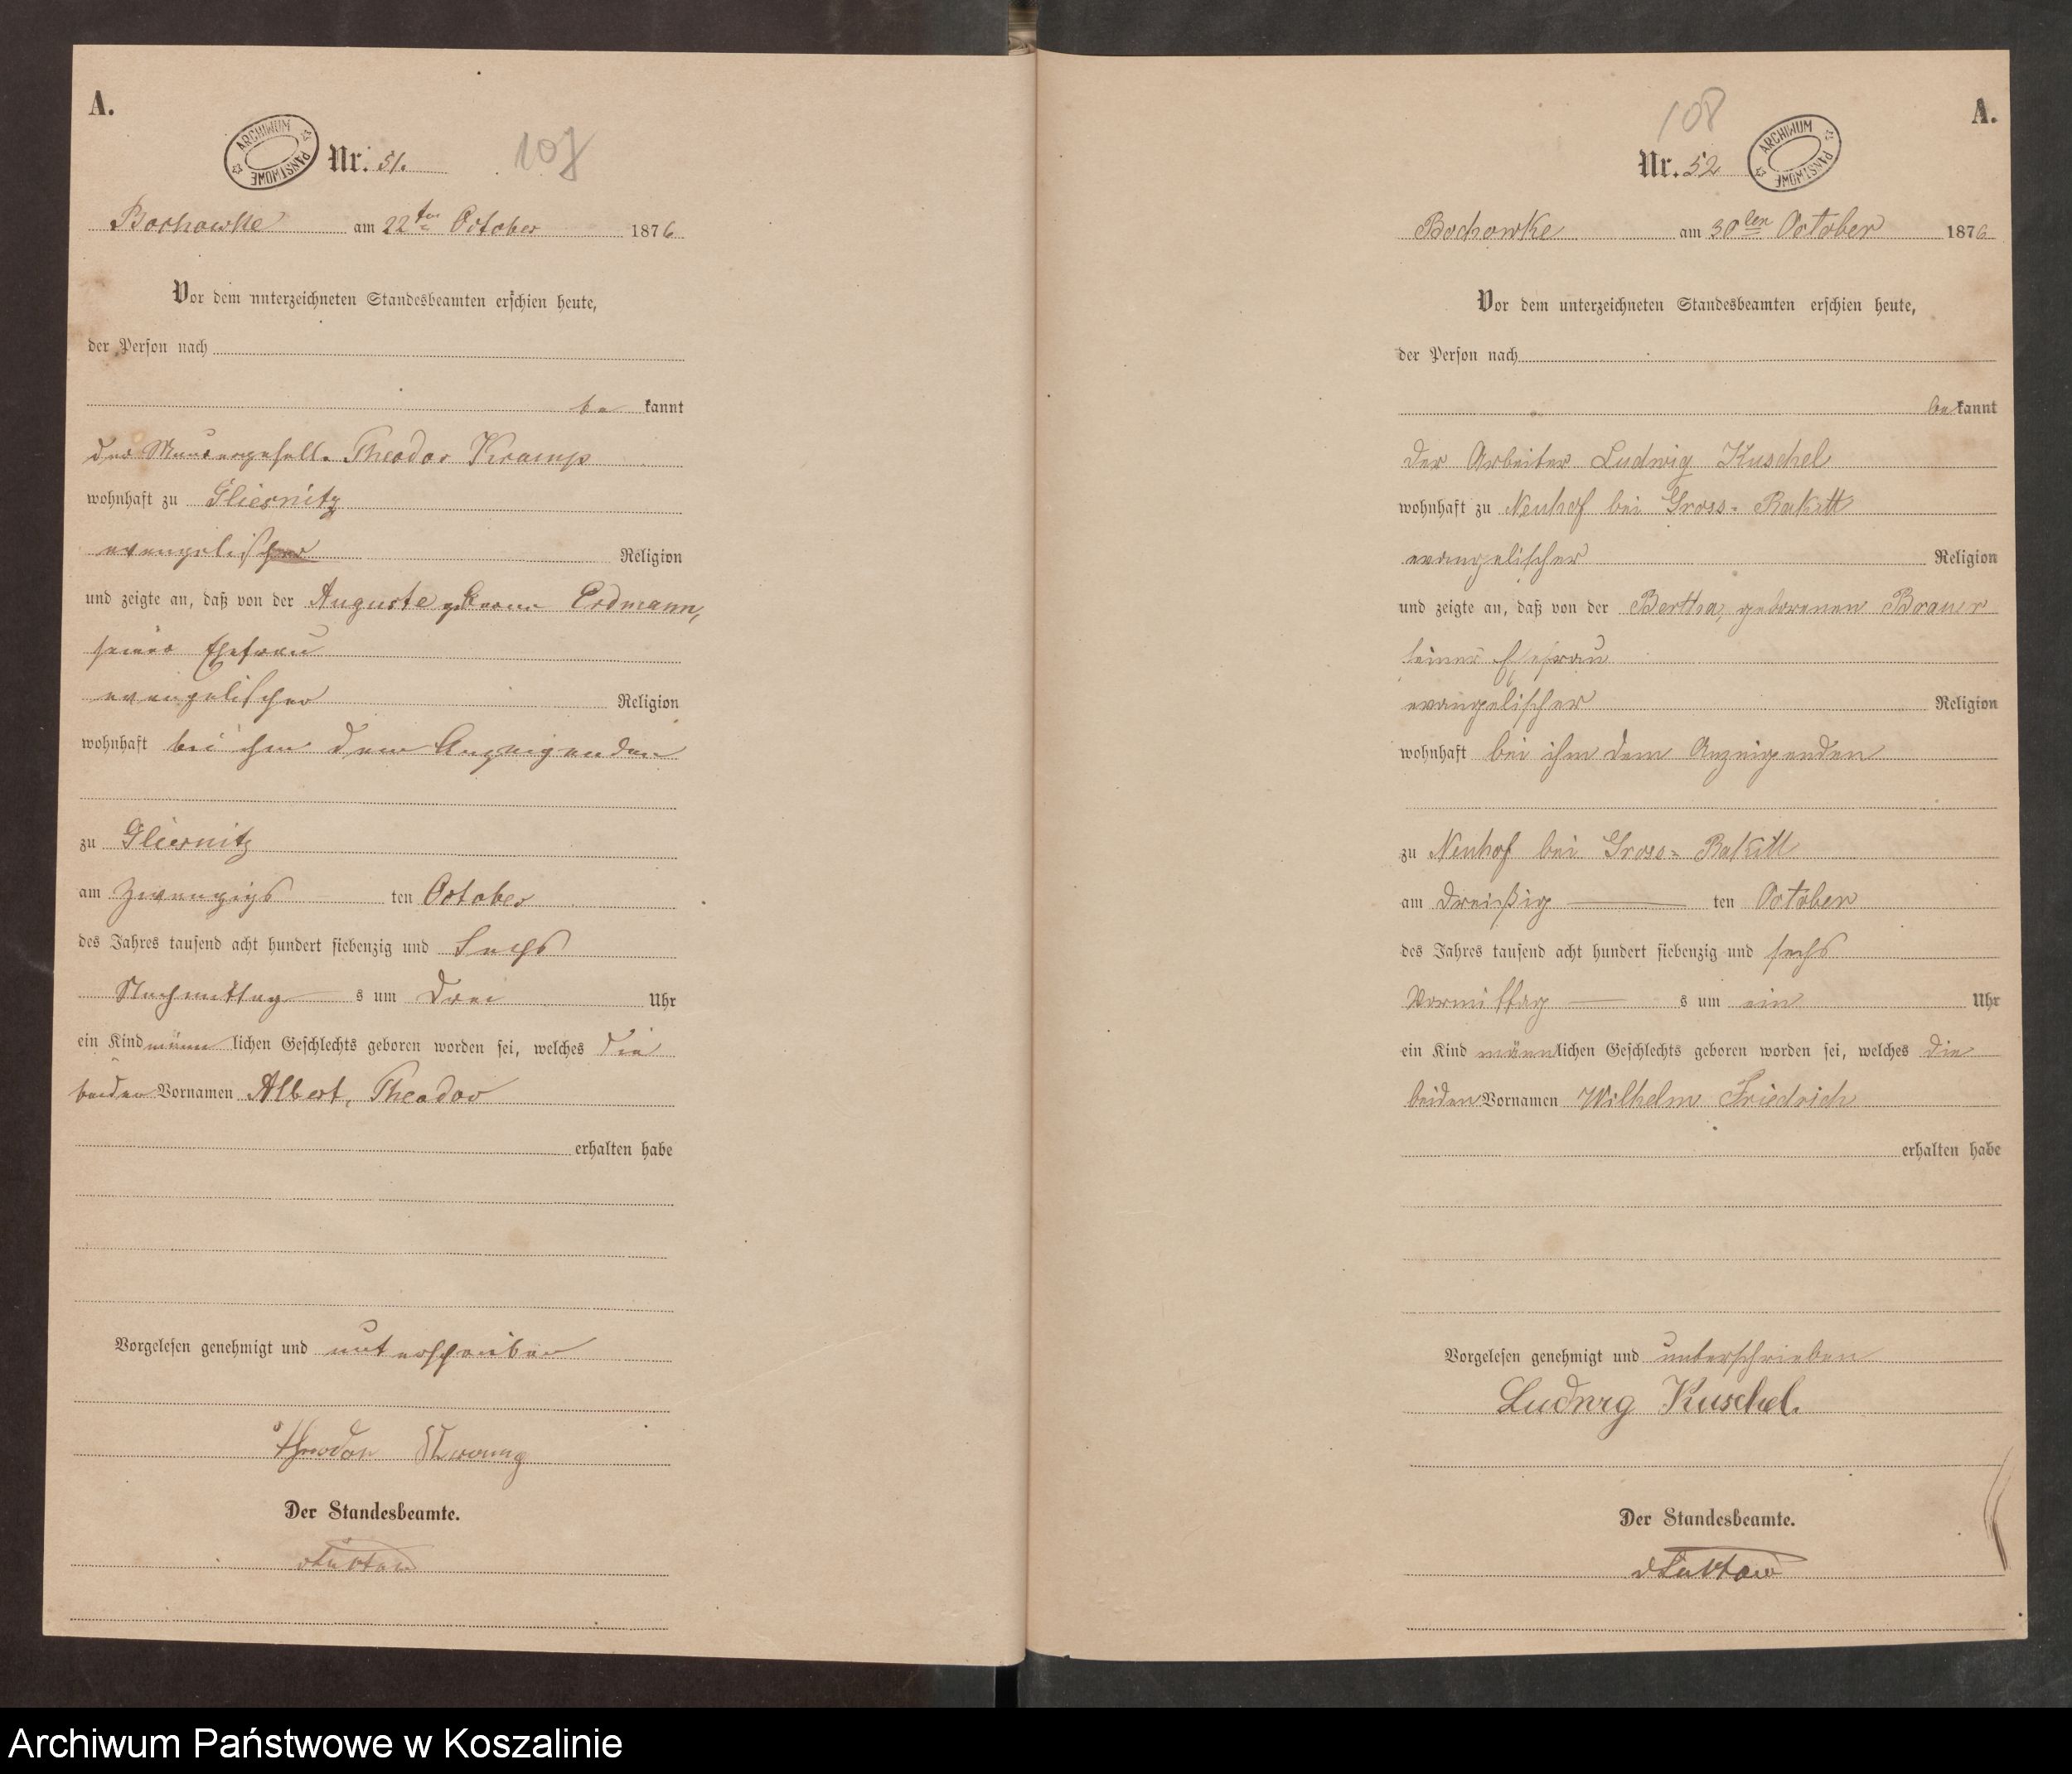 A.
ARCHIWUM PAŃSTWOWE
Nr. 51.
107
Bochowke am 22ten October 1876
Vor dem unterzeichneten Standesbeamten erschien heute,
der Person nach
be kannt
der Maurergeselle Theodor Kramp
wohnhaft zu Gliesnitz
evangelischer Religion
und zeigte an, daß von der Auguste geborne Erdmann,
seiner Ehefrau
evangelischer Religion
wohnhaft bei ihm dem Anzeigenden
zu Gliesnitz
am zwanzigs ten October
des Jahres tausend acht hundert siebenzig und sechs
Nachmittag s um drei Uhr
ein Kind männ lichen Geschlechts geboren worden sei, welches die
beiden Vornamen Albert, Theodor
erhalten habe
Vorgelesen genehmigt und unterschrieben
Theodor Kramp
Der Standesbeamte.
A.
108
Nr. 52
ARCHIWUM PAŃSTWOWE
Bochowke am 30ten October 1876
Vor dem unterzeichneten Standesbeamten erschien heute,
der Person nach
be kannt
der Arbeiter Ludwig Kuschel
wohnhaft zu Neuhof bei Gross-Rakitt
evangelischer Religion
und zeigte an, daß von der Bertha, geborenen Brauer
seiner Ehefrau
evangelischer Religion
wohnhaft bei ihm dem Anzeigenden
zu Neuhof bei Gross-Rakitt
am dreißig ten October
des Jahres tausend acht hundert siebenzig und sechs
Vormittag s um ein Uhr
ein Kind männlichen Geschlechts geboren worden sei, welches die
beiden Vornamen Wilhelm Friedrich
erhalten habe
Vorgelesen genehmigt und unterschrieben
Ludwig Kuschel.
Der Standesbeamte.
Archiwum Państwowe w Koszalinie